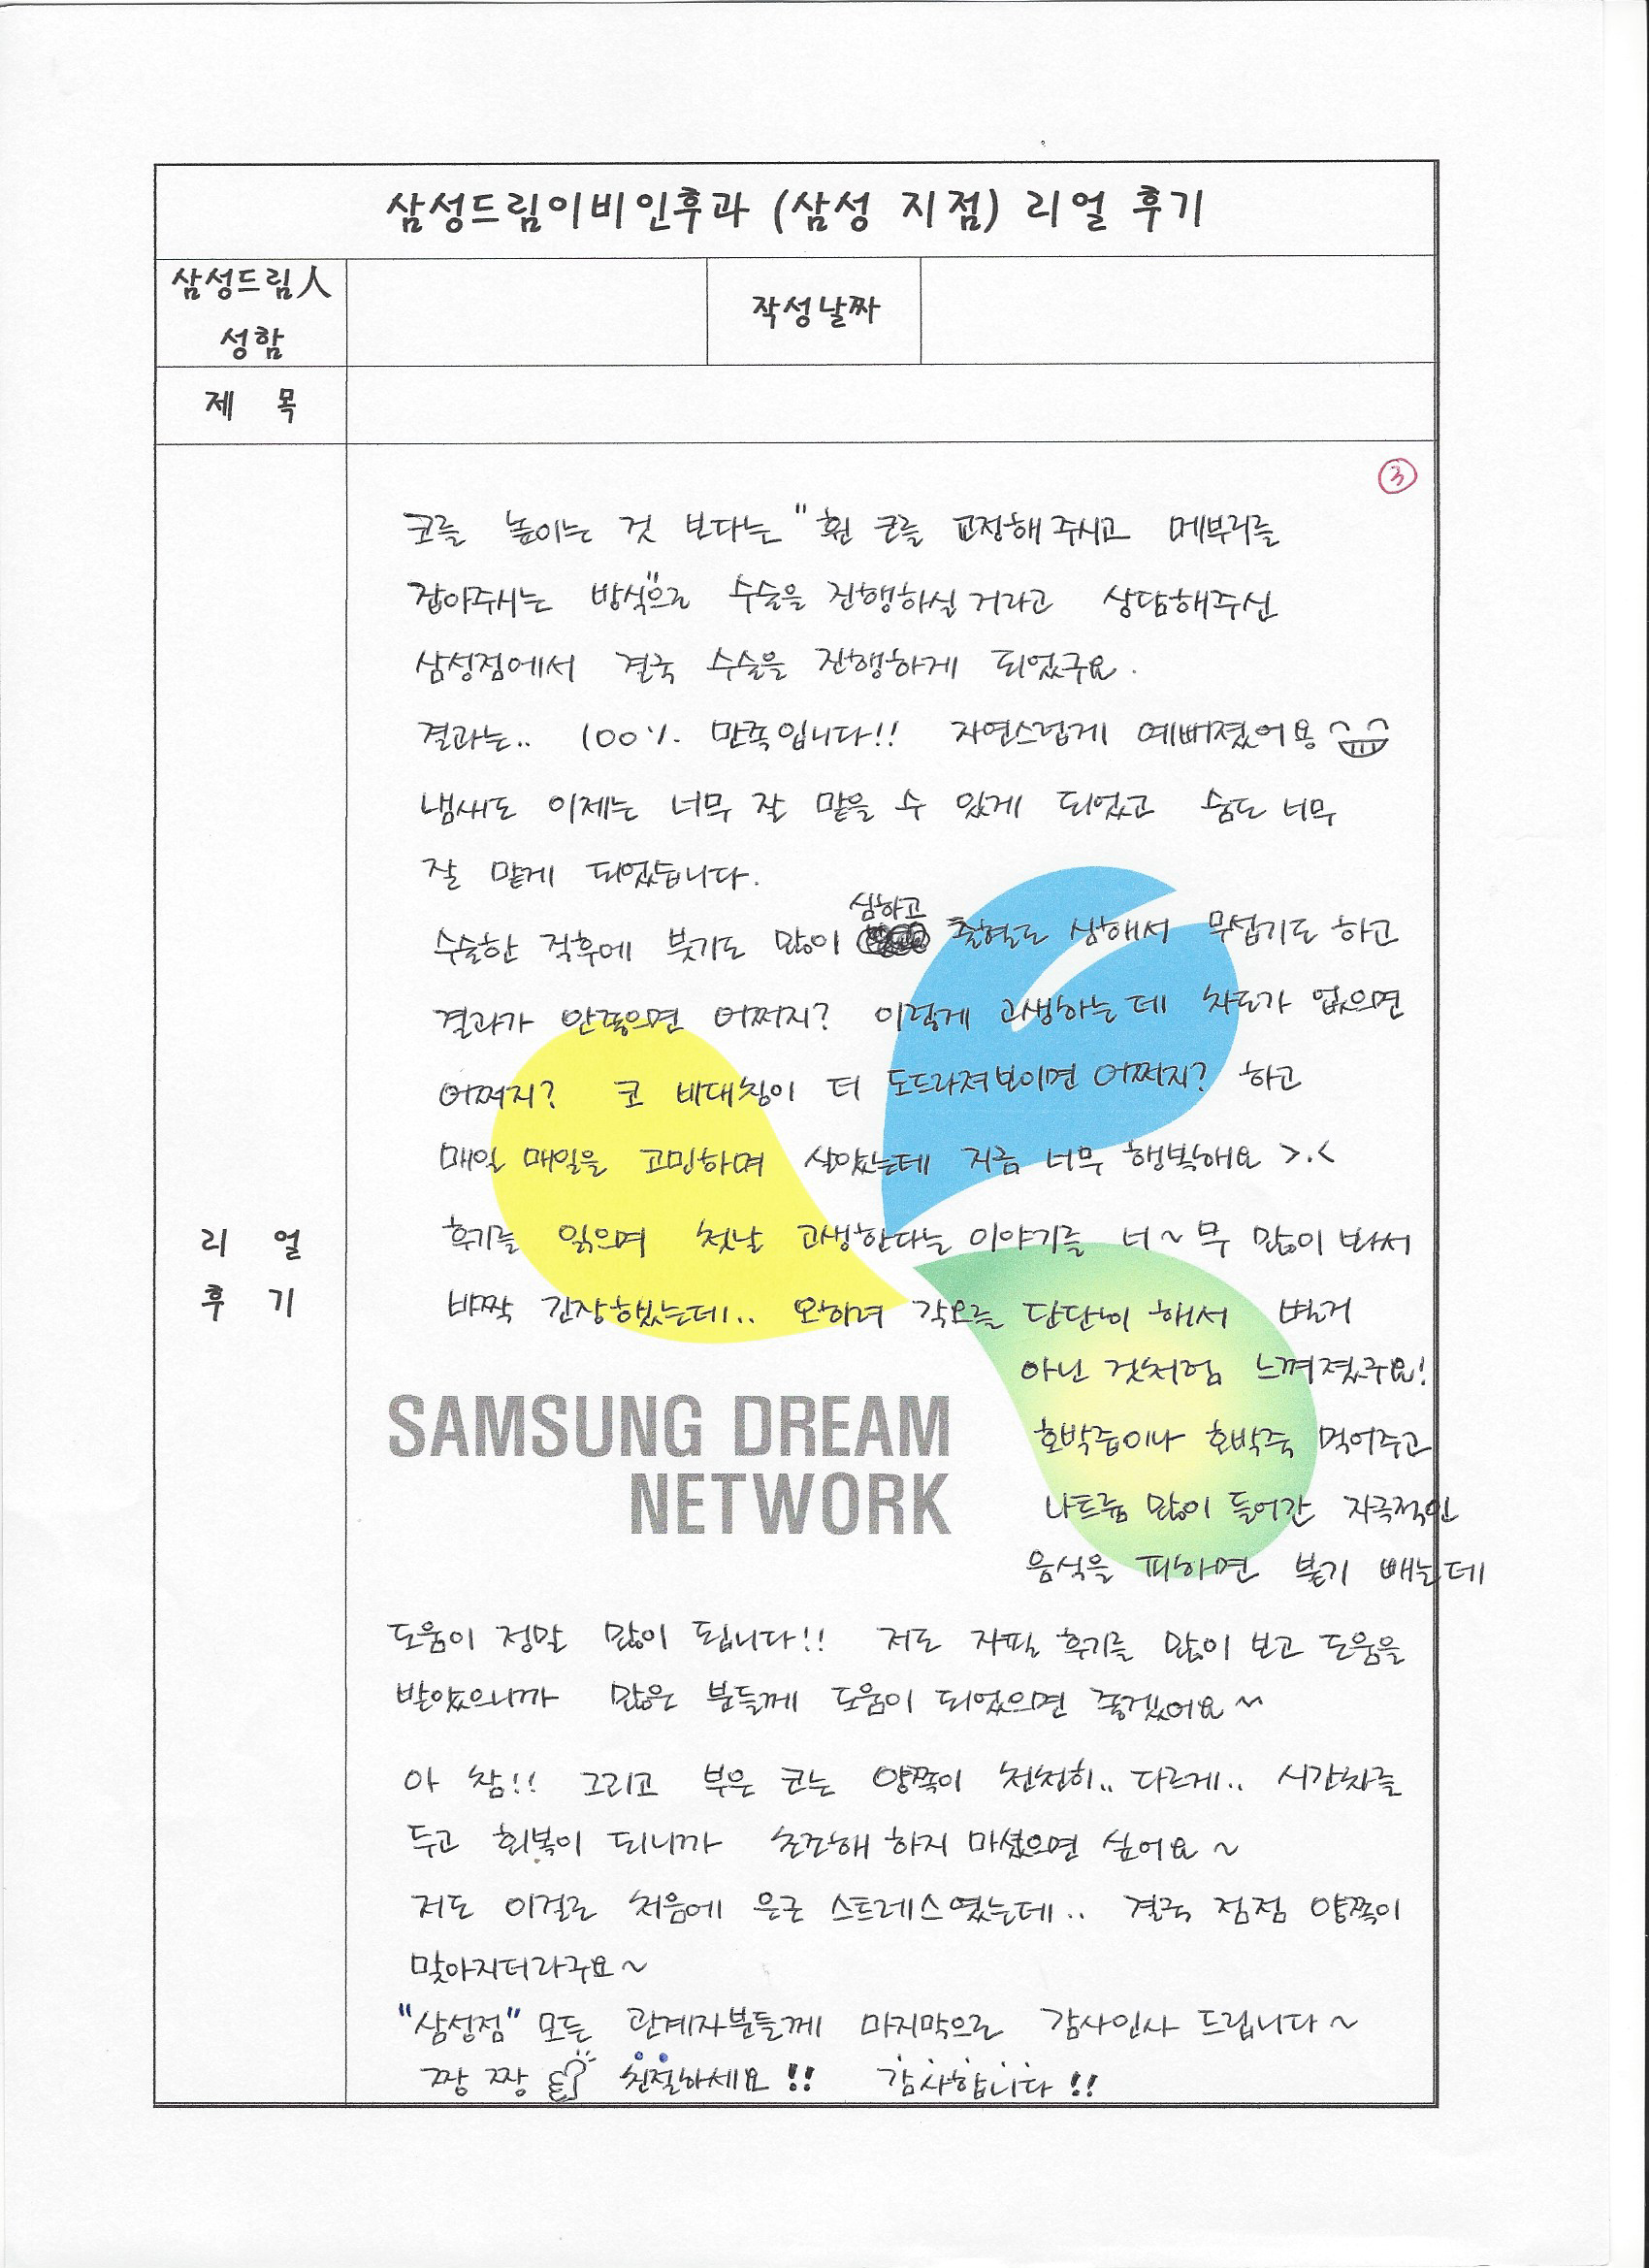 삼성드림이비인후과 (삼성 지점) 리얼 후기
삼성드림人
성함
작성날짜
제 목
③
코를 높이는 것 보다는 "휜 코를 교정해 주시고 메부리를
잡아주시는 방식"으로 수술을 진행하실거라고 상담해주신
삼성점에서 결국 수술을 진행하게 되었구요.
결과는.. 100% 만족입니다!! 자연스럽게 예뻐졌어용
냄새도 이제는 너무 잘 맡을 수 있게 되었고 숨도 너무
잘 맡게 되었습니다.
수술한 직후에 붓기도 많이 심하고 출혈도 심해서 무섭기도 하고
결과가 안좋으면 어쩌지? 이렇게 고생하는데 차도가 없으면
어쩌지? 코 비대칭이 더 도드라져보이면 어쩌지? 하고
매일 매일을 고민하며 살았는데 지금 너무 행복해요 >.<
후기를 읽으며 첫날 고생한다는 이야기를 너~무 많이 봐서
바짝 긴장했는데.. 오히려 각오를 단단히 해서 별거
아닌 것처럼 느껴졌구요!
호박즙이나 호박죽 먹어주고
나트륨 많이 들어간 자극적인
음식을 피하면 붙기 빼는데
SAMSUNG DREAM
NETWORK
리 얼
후 기
도움이 정말 많이 됩니다!! 저도 자필 후기를 많이 보고 도움을
받았으니까 많은 분들께 도움이 되었으면 좋겠어요~
아 참!! 그리고 부은 코는 양쪽이 천천히.. 다르게.. 시간차를
두고 회복이 되니까 초조해 하지 마셨으면 싶어요~
저도 이걸로 처음에 은근 스트레스였는데.. 결국 점점 양쪽이
맞아지더라구요~
"삼성점" 모든 관계자분들께 마지막으로 감사인사 드립니다~
짱 짱 친절하세요!! 감사합니다!!